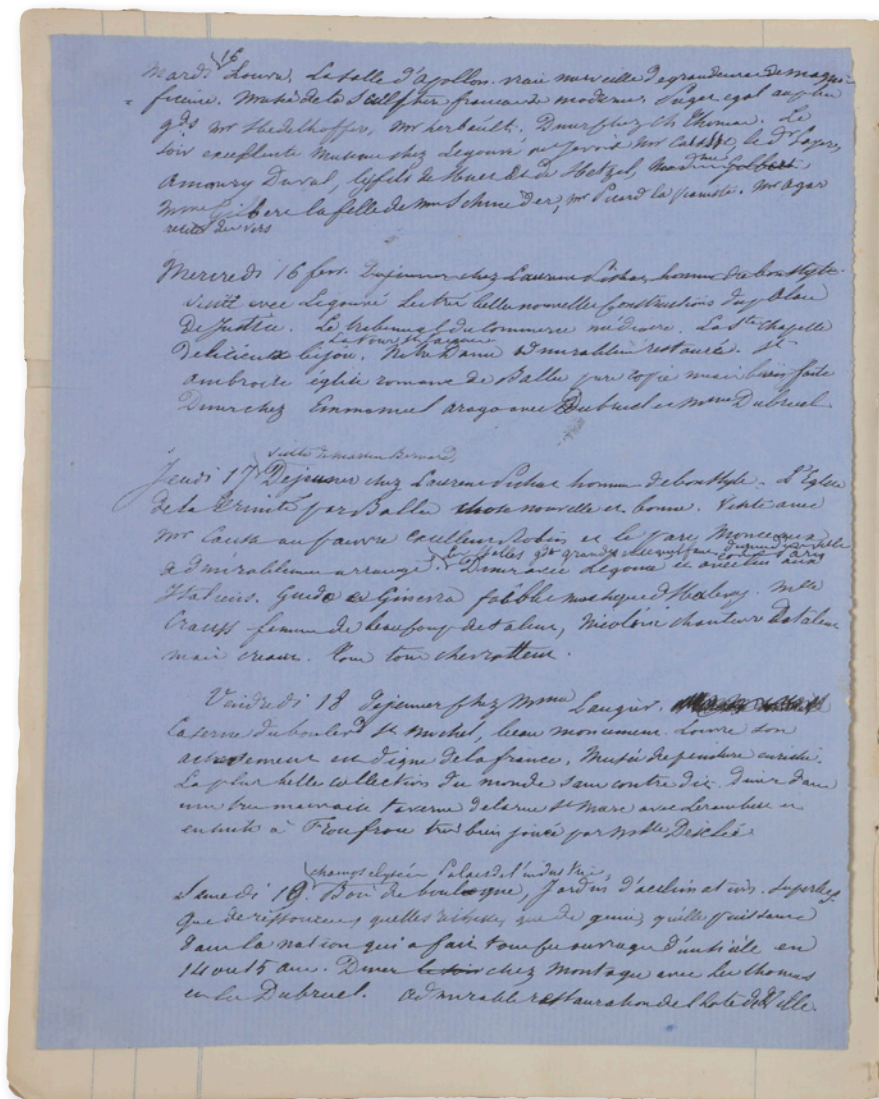 Mardi 15 Louvre, La salle d'apollon. vraie merveille de grandeur de magni-
ficence. Musée de la Sculpture francaise moderne. Puget egal aux plus
gds mr Stedelhoffer, mr herbault. Diner chez Ch Thomas. Le
soir excellente musique chez Legouvé ou j'avois mr le dr
Amaury Duval, les fils de de Hetzel,
Mme Gilbert la fille de mme Schneider, mr Picard la pianiste. Mr agar
recite des vers
Mercredi 16 fevr. Dejeuner chez Laurent Pichat, homme de bon style.
visité avec Legouvé les tres belles nouvelles Constructions du palais
de Justice. Le tribunal de Commerce médiocre. La Ste Chapelle
La tour St Jacques
delicieux bijou. Notre Dame admirablement restaurée. St
ambroise église romane de Ballu pure copie mais bien faite
Diner chez Emmanuel arago avec Dubruel et mme Dubruel
visite de Martin Bernard,
Jeudi 17 Dejeuner chez Laurent Pichat homme de bon style. L'Eglise
de la trinité par Ballu chose nouvelle et bonne. Visite avec
mr au pauvre excellent Robin et le parc Monceaux
les belles gdes grandes
admirablement arrangé. Diner avec Légouvé et avec lui aux
Italiens. Guido et Ginevra faible musique d'Halevy. Melle
Crauss femme de beaucoup de talent, Nicolini chanteur de talent
mais creux. Son ton chevrotteur.
Vendredi 18 dejeuner chez Mme Laugier.
Caserne du boulevd St Michel, beau monument. Louvre son
achevement est digne de la france. Musée de peinture enrichi.
La plus belle collection du monde sans contredit. diner dans
une tres mauvaise taverne de la rue St Marc avec et
ensuite à Froufrou tres bien jouée par Melle Desclée.
champs elysées Palais de l'industrie,
Samedi 19. Bois de boulogne, Jardin d'acclimatation. Superbes.
Que de ressources, quelles richesses, que de genie, quelle puissance
dans la nation qui a fait tous ces ouvrages d'un siécle en
14 ou 15 ans. Diner le soir chez Montagu avec les thomas
et les Dubruel. admirable restauration de l'hotel de Ville.